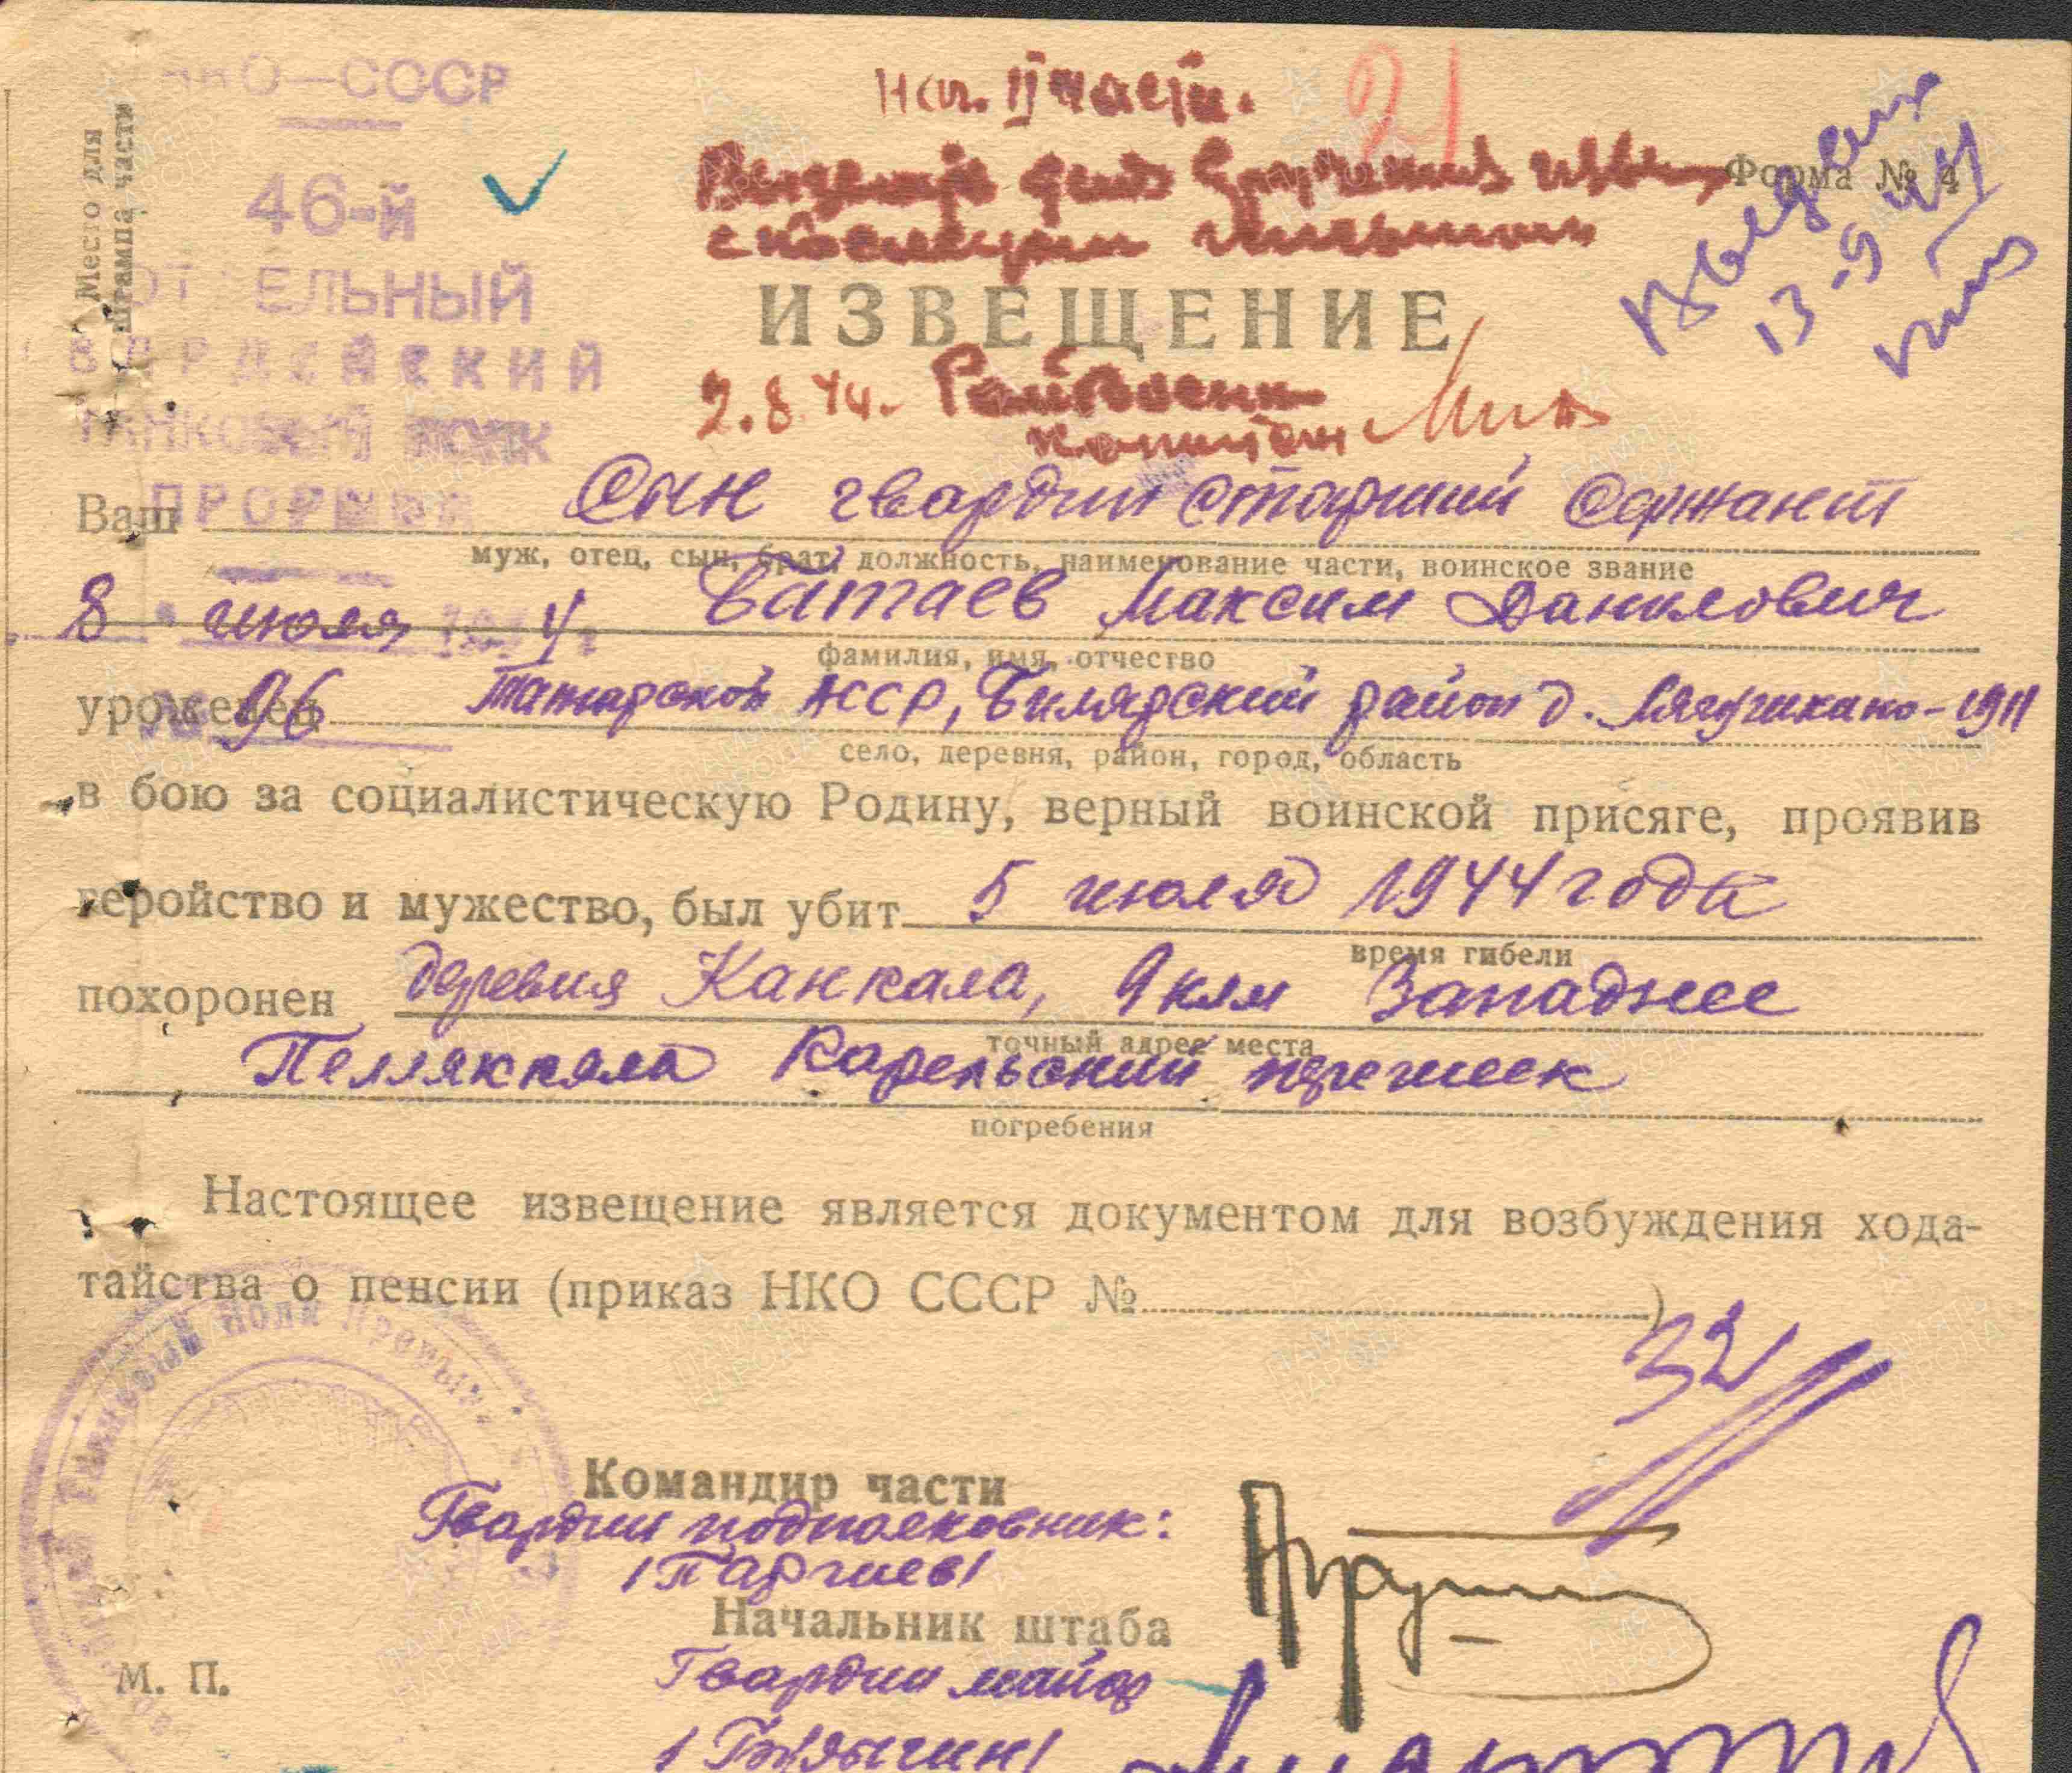 Место для
штампа части
НКО—СССР
46-й
ОТ ЕЛЬНЫЙ
ТАНКОВЫЙ ПОЛК
ПРОРЫВА
Нач. II части.
21
Форма № 4
13-9-44
ИЗВЕЩЕНИЕ
2.8.44. Райвоенком
капитан
Ваш Сын гвардии старший сержант
муж, отец, сын, брат, должность, наименование части, воинское звание
8 июля 1944 г.
Батаев Максим Данилович
фамилия, имя, отчество
№ 96
уроженец Татарской АССР, Билярский район д. - 1911
село, деревня, район, город, область
в бою за социалистическую Родину, верный воинской присяге, проявив
геройство и мужество, был убит 5 июля 1944 года
время гибели
похоронен деревня Канкала, 9 клм Западнее
точный адрес места
Пелляккяля Карельский перешеек
погребения
Настоящее извещение является документом для возбуждения хода-
тайства о пенсии (приказ НКО СССР № )
32
Командир части
Гвардии подполковник:
Начальник штаба
Гвардии майор
М. П.
ПАМЯТЬ
НАРОДА